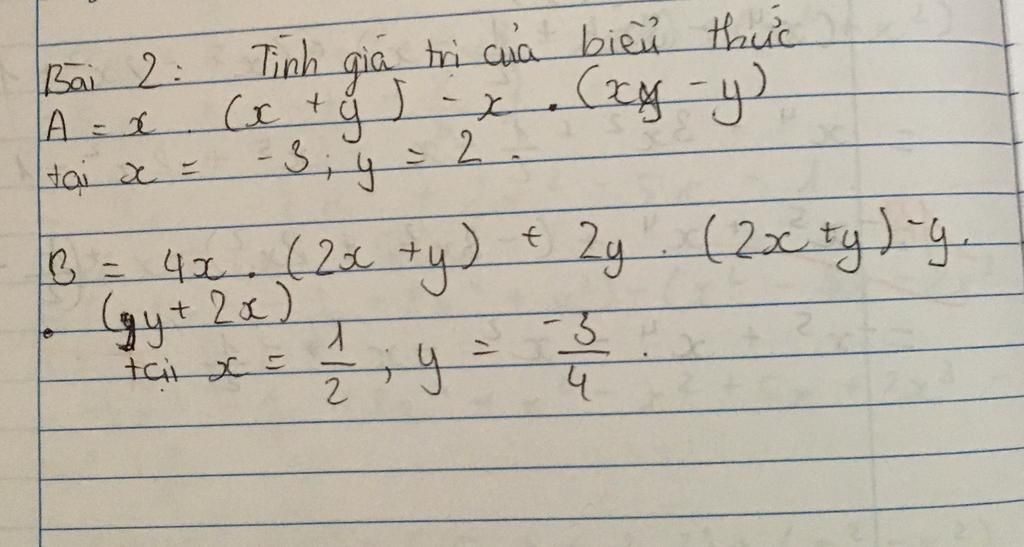 Bài 2: Tính giá trị của biểu thức
A = x . (x + y) - x . (x - y)
tại x = -3 ; y = 2 .
B = 4x . (2x + y) + 2y . (2x + y) - y .
. (y + 2x)
tại x = 1/2 ; y = -3/4 .